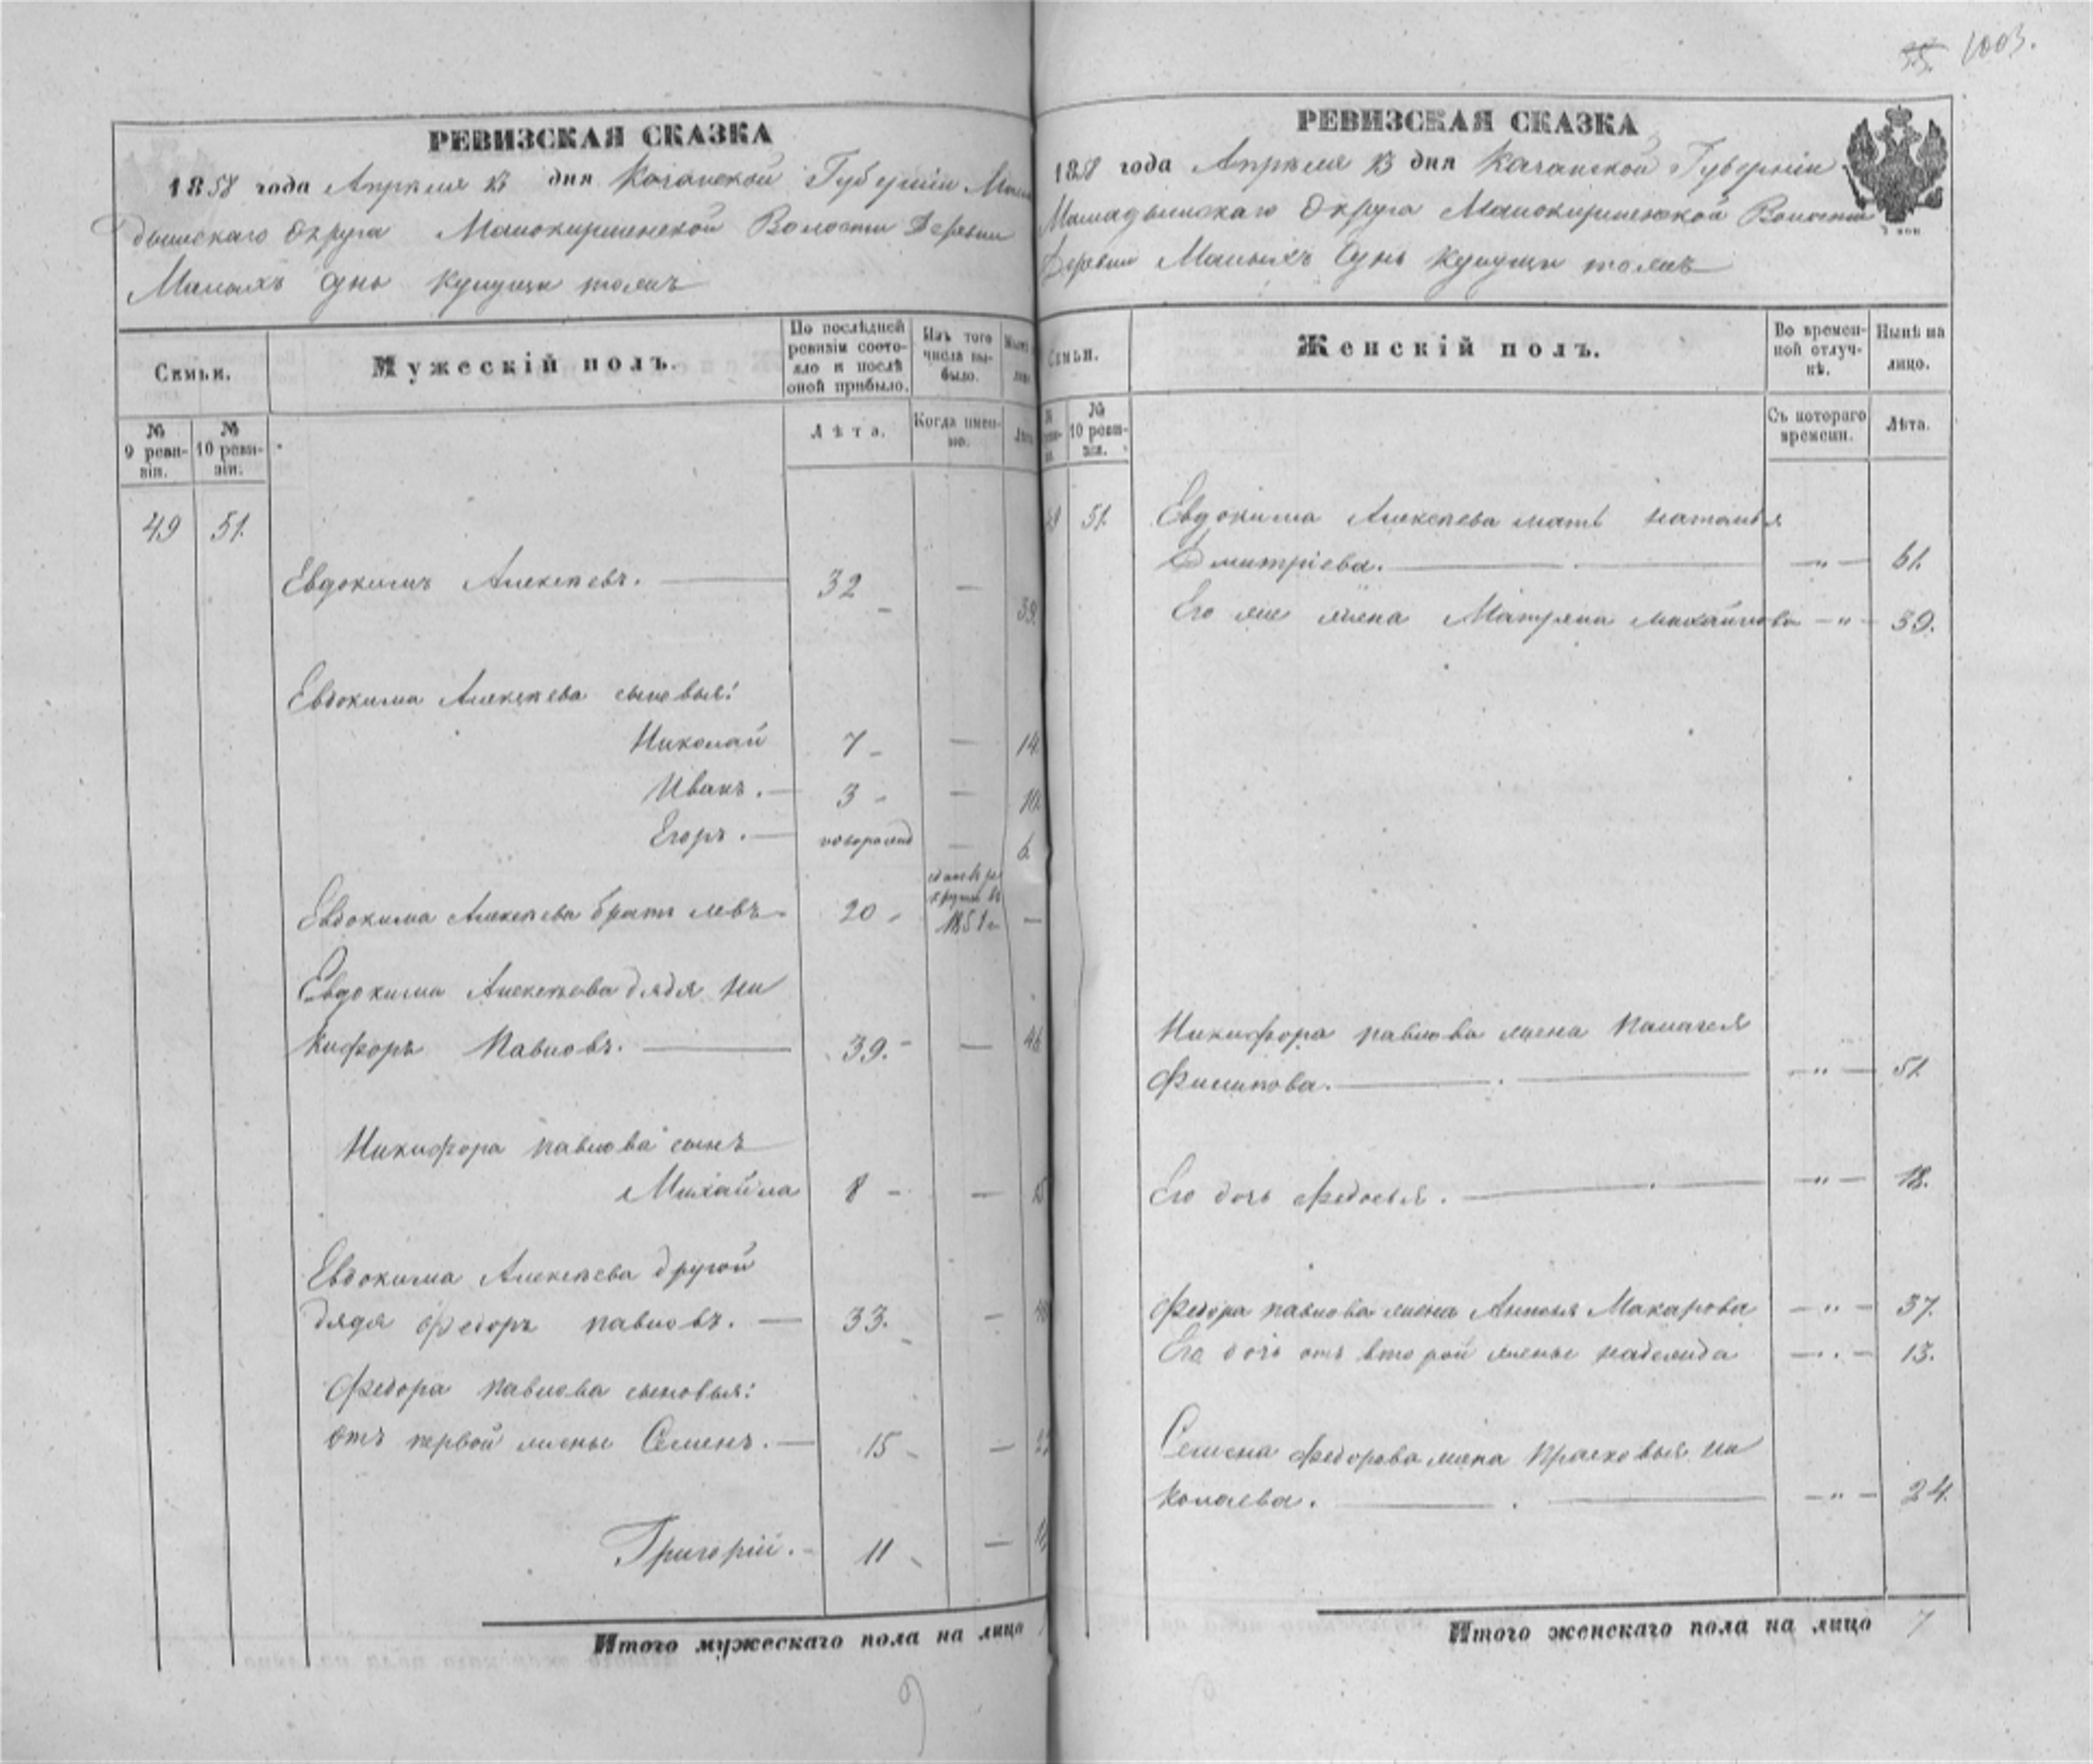 1003.
РЕВИЗСКАЯ СКАЗКА
1858 года Апреля 13 дня Казанской Губернии Мама
дышскаго Округа Малокирменской Волости Деревни
Малыхъ
Семьи.
Мужескій полъ.
По послѣдней ревизіи состояло и послѣ оной прибыло.
Изъ того числа выбыло.
№ 9 ревизіи.
№ 10 ревизіи.
Лѣта.
Когда именно.
49 51.
Евдокимъ Алексѣевъ. 32 — 39.
Евдокима Алексѣева сыновья:
Николай 7 — 14
Иванъ. 3 — 10.
Егоръ. новорожд — 6
Евдокима Алексѣева братъ Левъ 20 1851г —
Евдокима Алексѣева дядя Ни
кифоръ Павловъ. 39. — 46
Никифора Павлова сынъ
Михайла 8 — 15
Евдокима Алексѣева другой
дядя Федоръ Павловъ. 33. — 40
Федора Павлова сыновья:
отъ первой жены Семенъ. 15 —
Григорій. 11 —
Итого мужескаго пола на лицо
9
РЕВИЗСКАЯ СКАЗКА
1858 года Апреля 13 дня Казанской Губерніи
Мамадышскаго Округа Малокирменской Волости
Деревни Малыхъ
Семьи.
Женскій полъ.
Во временной отлучкѣ.
Нынѣ на лицо.
№ 10 ревизіи.
Съ котораго времени.
Лѣта.
49 51.
Евдокима Алексѣева мать Наталья
Дмитріева. — " — 61.
Его же жена Матрена Михайлова — " — 39.
Никифора Павлова жена Палагея
Филипова. — " — 51.
Его дочь Федосья. — " — 18.
Федора Павлова жена Анисья Макарова — " — 37.
Его дочь отъ второй жены Надежда — " — 13.
Семена Федорова жена Прасковья Ни
колаева. — " — 24.
Итого женскаго пола на лицо 7